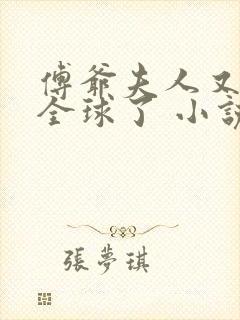 傅爺夫人又
全球了 小說
張夢琪